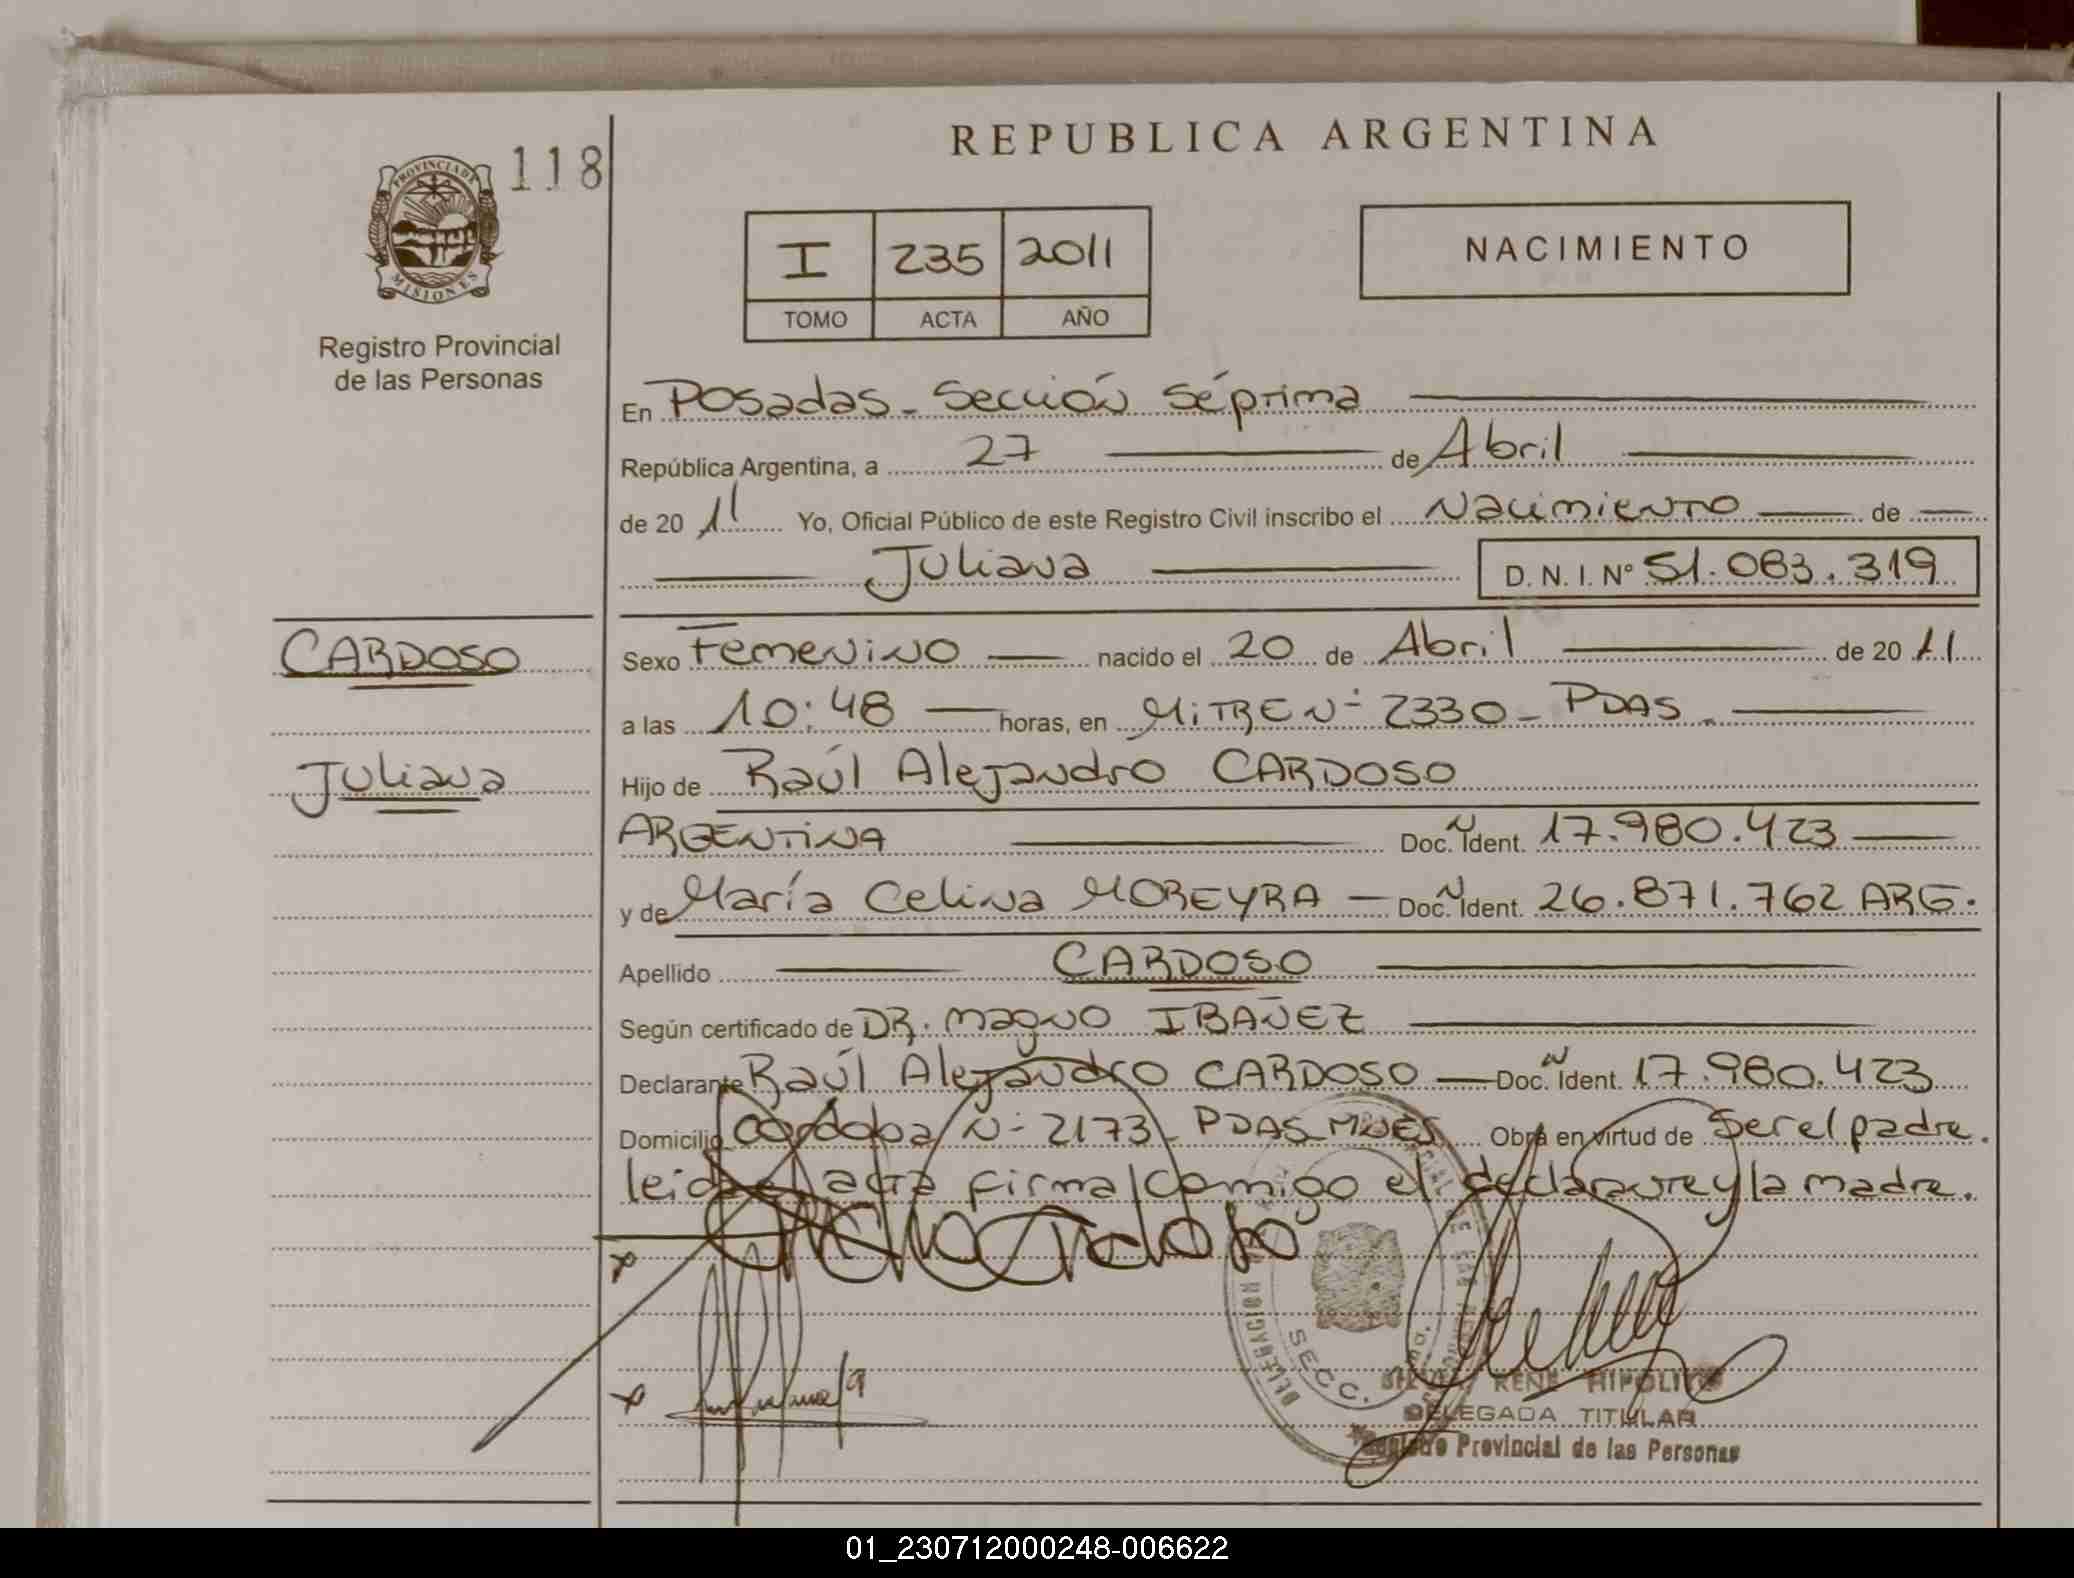 REPUBLICA ARGENTINA
118
PROVINCIA DE
MISIONES
Registro Provincial
de las Personas
I 235 2011
TOMO ACTA AÑO
NACIMIENTO
En Posadas - Sección Séptima
República Argentina, a 27 de Abril
de 20 11 Yo, Oficial Público de este Registro Civil inscribo el Nacimiento de
Juliana D. N. I. Nº 51.083.319
CARDOSO
Juliana
Sexo Femenino nacido el 20 de Abril de 20 11
a las 10:48 horas, en MiTRE N- 2330 - PDAS.
Hijo de Raúl Alejandro CARDOSO
ARGENTiNA Doc. Ident. 17.980.423
y de María Celina MOREYRA Doc. Ident. 26.871.762 ARG.
Apellido CARDOSO
Según certificado de DR. Magno IBAÑEZ
Declarante Raúl Alejandro CARDOSO Doc. Ident. 17.980.423
Domicilio Córdoba N- 2173 - PDAS MNES Obra en virtud de Ser el padre.
leida el acta firma comigo el declarante y la madre.
x
x
DELEGACION
SECC.
RENE HIPOLITO
DELEGADA TITULAR
Registro Provincial de las Personas
01_230712000248-006622